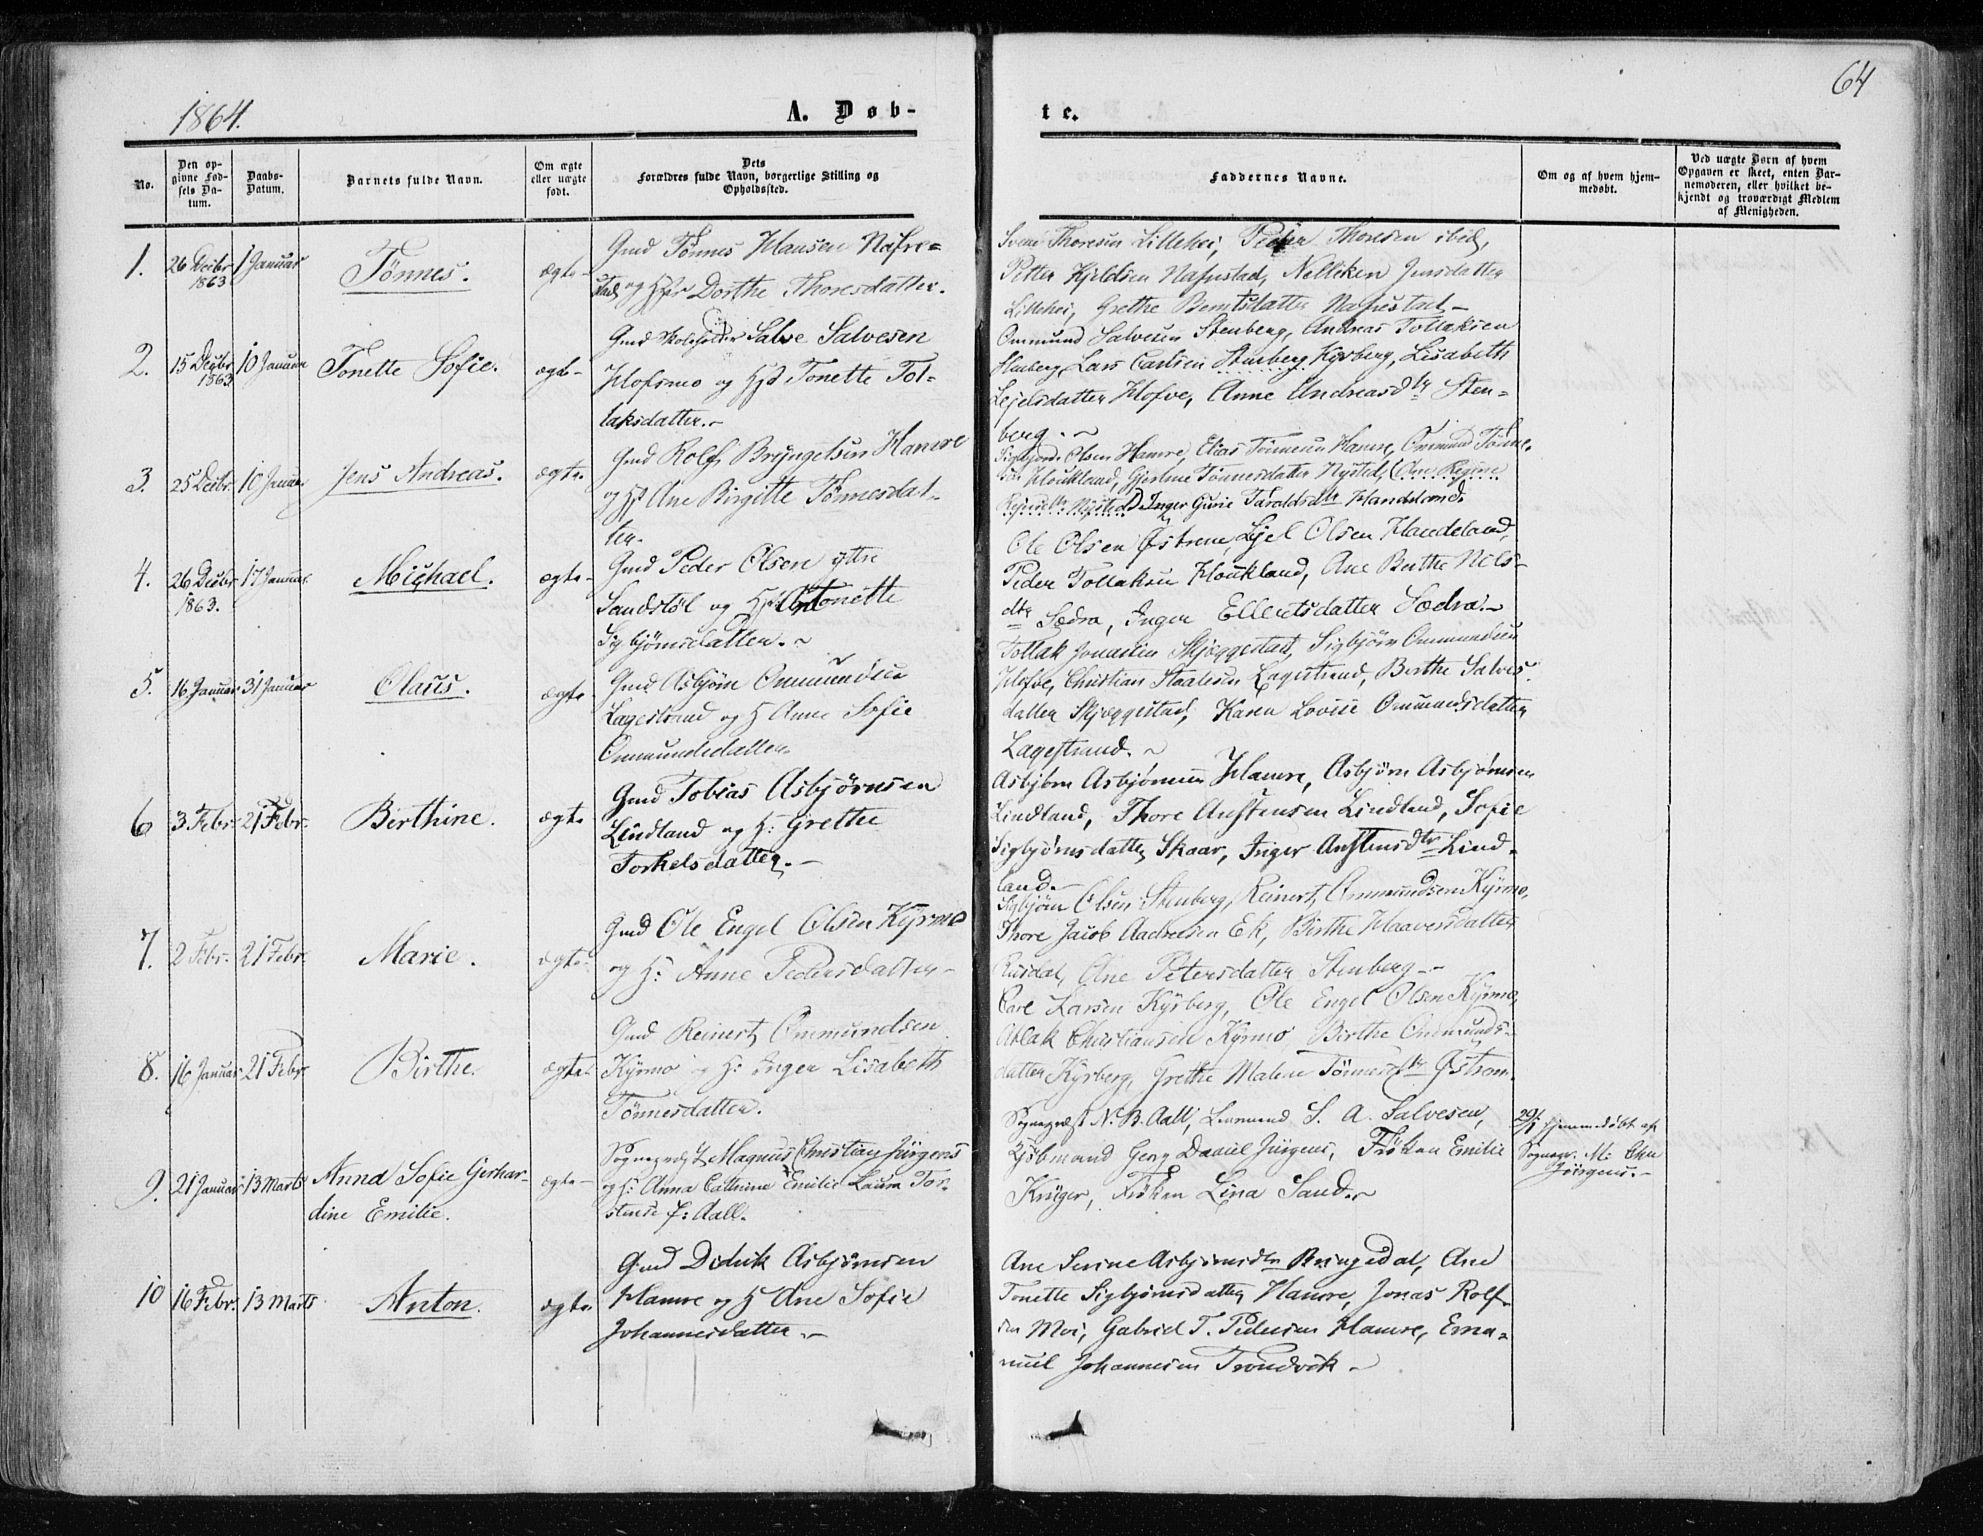 64
1864.
A. Døb-
te.
No.
Den op-
givne Fød-
sels Da-
tum.
Daabs-
Datum.
Barnets fulde Navn.
Om ægte
eller uægte
født.
Dets
Forældres fulde Navn, borgerlige Stilling og
Opholdssted.
Faddernes Navne.
Om og af hvem hjem-
medøbt.
Ved uægte Børn af hvem
Opgaven er skeet, enten Bar-
nemoderen, eller hvilket be-
kjendt og troværdigt Medlem
af Menigheden.
1.
26 Decbr
1863
1 Januar
Tønnes.
ægte
Gmd Tønnes Hansen Nafre=
stad og Dorthe Thoresdatter.
Svend Thoresen Lillehei, Peder Thoresen ibid,
Petter Kjeldsen Nafrestad, Nelliken Jensdatter
Lillehei, Grethe Berntsdatter Nafrestad-
2.
15 Decbr
1863
10 Januar
Tonette Sofie.
ægte-
Gmd Skoleholder Salve Salvesen
Hofsmo og Hst Tonette Tol-
laksdatter.-
Ommund Salvesen Stenberg, Andreas Tollaksen
Stenberg, Lars Carlsen Stenberg Kyrberg, Lisabeth
Lejelsdatter Hofve, Anne Andreasdtr Sten=
berg.-
3.
25 Decbr.
10 Januar
Jens Andreas.
ægte.
Gmd Rolf Bryngelsen Hamre
og Ane Birgitte Tønnesdat-
ter.
Sigbjørn Olsen Hamre, Elias Tønnesen Hamre, Ommund Tønne-
sen Houkland, Gjertine Tønnesdatter Nysted, Ane Regine
Nysted Inger Gurie Taraldsdtr Handeland.
4.
26 Decbr
1863.
17 Januar.
Michael.
ægte-
Gmd Peder Olsen ytre
Sandstøl og Hst Antonette
Sigbjørnsdatter.-
Ole Olsen Østrem, Ljel Olsen Handeland,
Peder Tollaksen Houkland, Ane Berthe Nils-
dtr Sædra, Inger Ellertsdatter Sædra.-
5.
16 Januar
31 Januar
Olaus.
ægte
Gmd Asbjørn Ommundsen
Lagestrand og H Anne Sofie
Ommundsdatter
Tollak Jonassen Skjeggestad, Sigbjørn Ommundsen
Hofve, Christian Staalesen Lagestrand, Berthe Salves-
datter Skjæggestad, Karen Lovise Ommundsdatter
Lagestrand.-
6
3 Febr.
21 Febr.
Birthine.
ægte
Gmd Tobias Asbjørnsen
Lindland og H: Grethe
Torkelsdatter.-
Asbjørn Asbjørnsen Hamre, Asbjørn Asbjørnsen
Lindland, Thore Anstensen Lindland, Sofie
Sigbjørnsdatter Skaar, Inger Anstensdtr Lind-
land.-
7.
2 Febr.
21 Febr.
Marie.
ægte.
Gmd Ole Engel Olsen Kyrmo
og H: Anne Pedersdatter-
Sigbjørn Olsen Stenberg, Reinert Ommundsen Kyrmo,
Thore Jacob Aadnesen Ek, Birthe Haaversdatter
Ane Petersdatter Stenberg.-
8.
16 Januar
21 Febr.
Birthe.
ægte
Gmd Reinert Ommundsen
Kyrmo og H: Inger Lisabeth
Tønnesdatter.
Carl Larsen Kyrberg, Ole Engel Olsen Kyrmo,
Atlak Christiansen Kyrmo Birthe Ommunds-
datter Kyrberg, Grethe Malene Tønnesdtr Østrem.
9.
21 Januar
13 Marts
Anna Sofie Gerhar-
dine Emilie.
ægte-
Sognepræst Magnus Christian Jürgens
og H: Anna Cathrine Emilie Laura Tor-
stense f: Aall.
Sognepræst N. B. Aall, Lensmand S. A. Salvesen,
Kjøbmand Georg Daniel Jürgens, Frøken Emilie
Krüger, Frøken Lina Sand.-
29/1 hjemmedøbt af
Sognepr. M. Chr
Jürgens.-
10
16 Febr.
13 Marts
Anton.
ægte
Gmd Didrik Asbjørnsen
Hamre og H Ane Sofie
Johannesdatter.-
Ane Serine Asbjørnsdtr Ringedal, Ane
Tonette Sigbjørnsdatter Hamre, Jonas Rolf-
sen Moi, Gabriel T. Pedersen Hamre, Ema-
nuel Johannesen Trondvik-